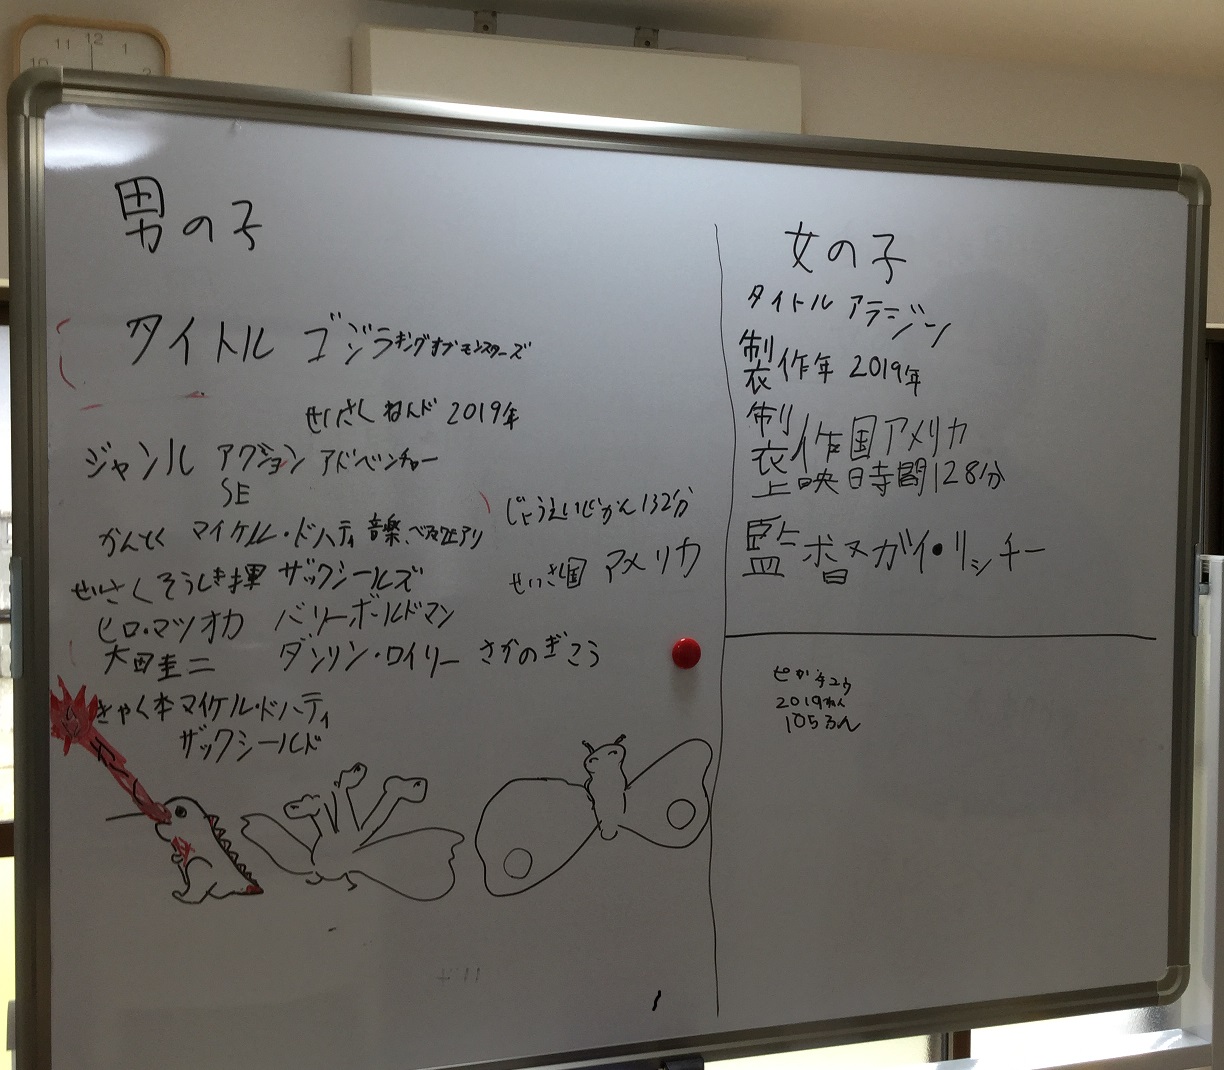 11 12 1
10 2
男の子
タイトル ゴジラキングオブモンスターズ
せいさくねんド 2019年
ジャンル アクション アドベンチャー
SE
かんとく マイケル・ドハティ 音楽
じょうえいじかん132分
せいさく国 アメリカ
せいさくそうしき揮 ザックシールズ
ヒロ・マツオカ バリーボールドマン
大田圭二 ダンリン・ロイリー さかのぎこう
きゃく本マイケル・ドハティ
ザックシールド
女の子
タイトル アラジン
製作年 2019年
製作国アメリカ
上映日寺間128分
監督ヌガイ・リッチー
ピかチュウ
2019ねん
105ふん